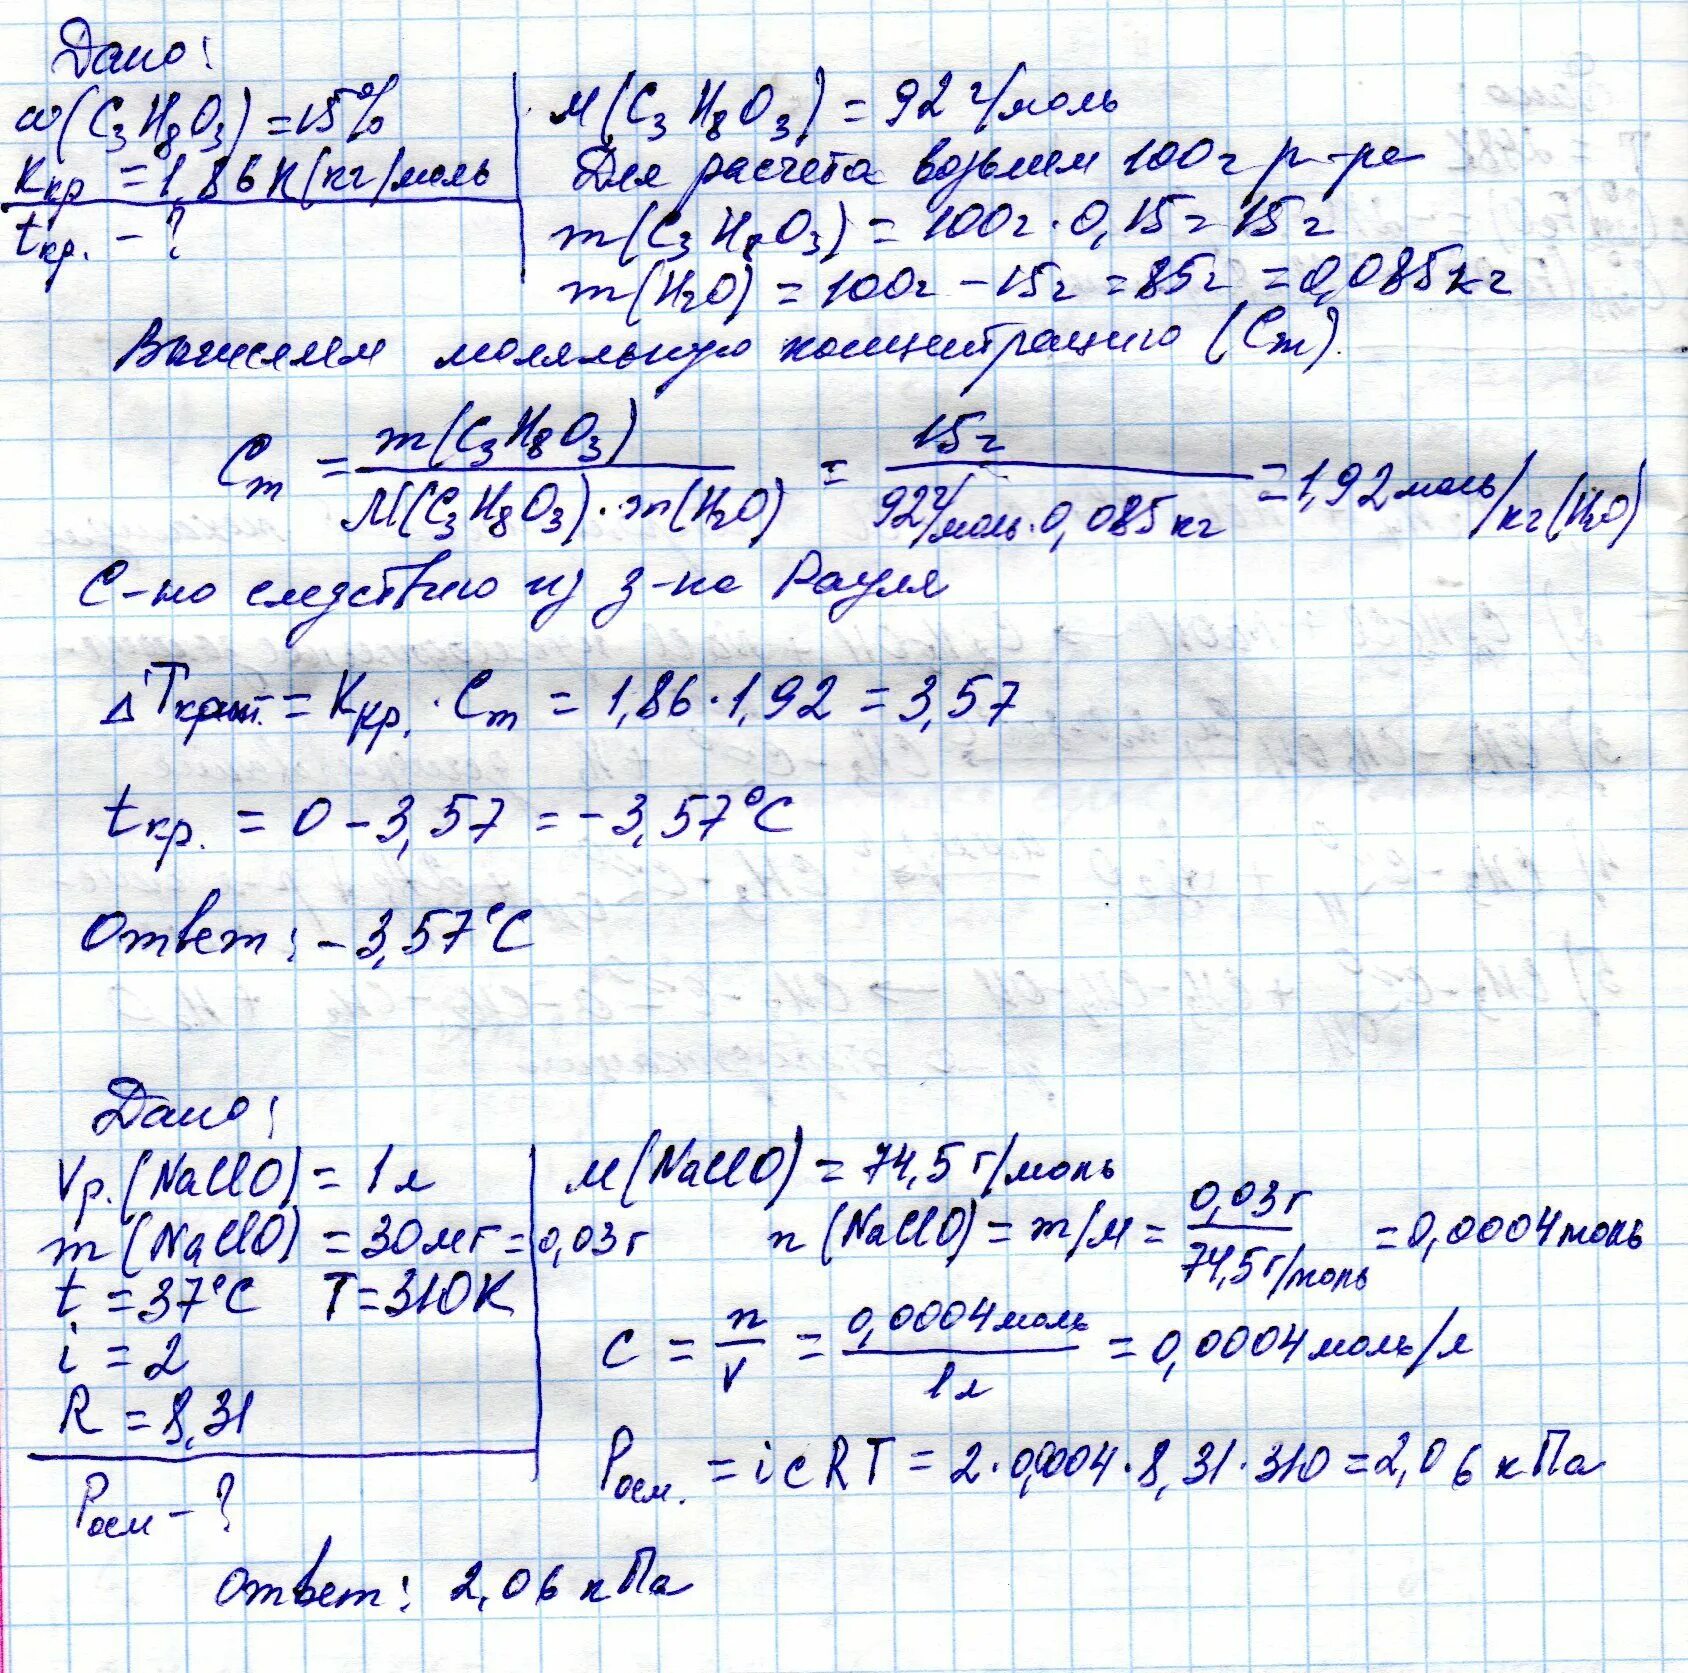 Дано:
w(C3H8O3) = 15%
Kкр = 1,86 К(кг/моль
tкр. - ?
M(C3H8O3) = 92 г/моль
Для расчета возьмем 100г р-ра
m(C3H8O3) = 100г · 0,15 = 15г
m(H2O) = 100г - 15г = 85г = 0,085кг
Вычисляем моляльную концентрацию (Cm).
Cm = m(C3H8O3) / M(C3H8O3) · m(H2O) = 15г / 92 г/моль · 0,085кг = 1,92 моль/кг(H2O)
С-но следствию из з-на Рауля
ΔTкрист. = Kкр. · Cm = 1,86 · 1,92 = 3,57
tкр. = 0 - 3,57 = -3,57°C
Ответ: -3,57°C
Дано:
Vр.(NaClO) = 1л
m(NaClO) = 30мг = 0,03г
t = 37°C T = 310K
i = 2
R = 8,31
Pосм - ?
M(NaClO) = 74,5 г/моль
n(NaClO) = m/M = 0,03г / 74,5г/моль = 0,0004моль
C = n / V = 0,0004моль / 1л = 0,0004моль/л
Pосм. = icRT = 2 · 0,0004 · 8,31 · 310 = 2,06 кПа
Ответ: 2,06 кПа